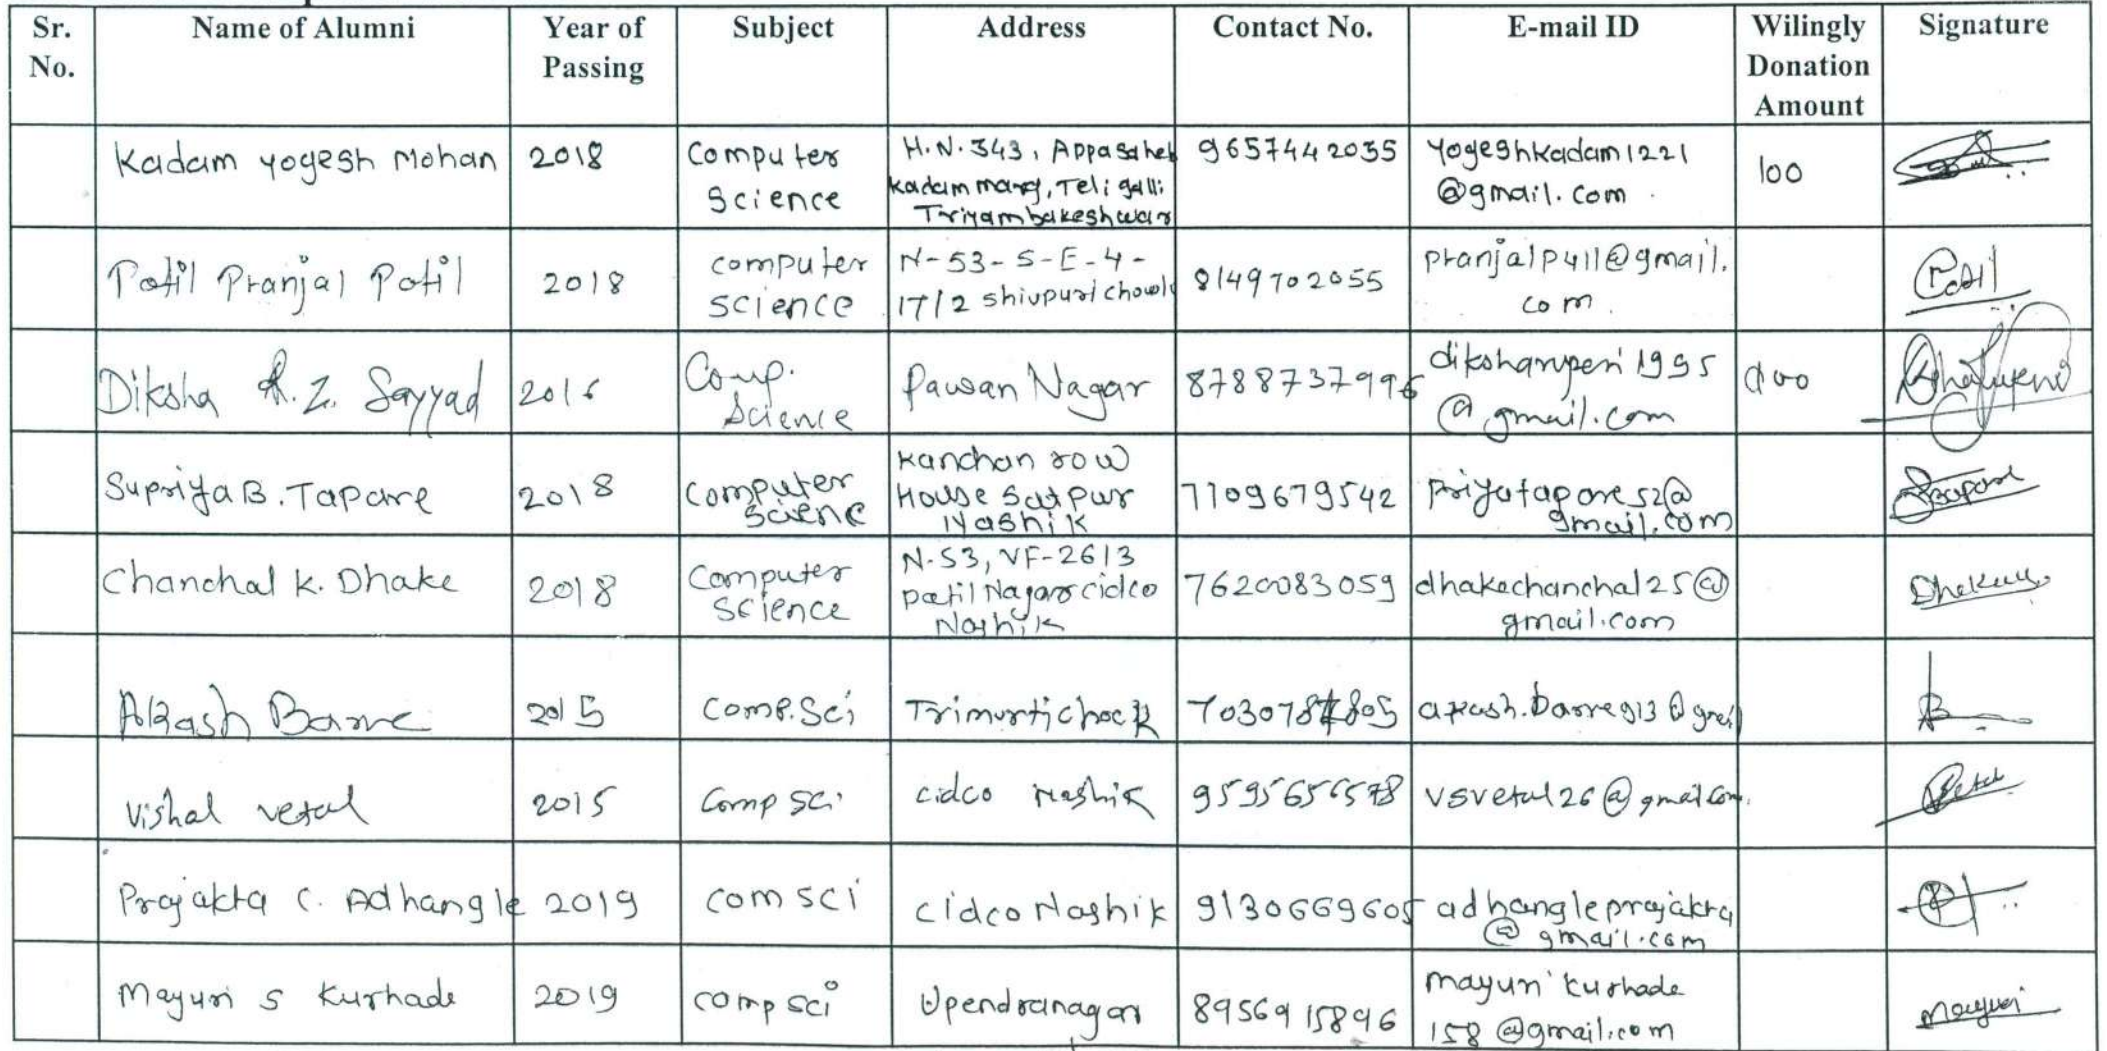 Sr. No. Name of Alumni Year of Passing Subject Address Contact No. E-mail ID Wilingly Donation Amount Signature
Kadam Yogesh Mohan 2018 Computer Science H.N. 343, Appasaheb Kadam marg, Teli galli Triyambakeshwar 9657442035 Yogeshkadam1221@gmail.com 100
Patil Pranjal Patil 2018 computer science N-53-S-E-4-17/2 Shivpuri chowk 8149702055 pranjalp411@gmail.com Patil
Diksha R. Z. Sayyad 2016 Comp. Science Pawan Nagar 8788737996 @gmail.com
Supriya B. Tapare 2018 Computer Scienc Kanchan row House Satpur Nashik 7109679542 priyatapare52@gmail.com
Chanchal K. Dhake 2018 Computer Science N-53, VF-2613 patil Nagar cidco Nashik 7620083059 dhakechanchal25@gmail.com
Akash Barve 2015 Comp.Sci Trimurti chock
Vishal vetal 2015 Comp sci cidco Nashik 9595656578 vsvetal26@gmail.com
Prajakta C. Adhangle 2019 com sci cidco Nashik 9130669605 adhangleprajakta@gmail.com
Mayuri S Kurhade 2019 comp sci Upendranagar 8956915896 mayuri kurhade 158@gmail.com mayuri